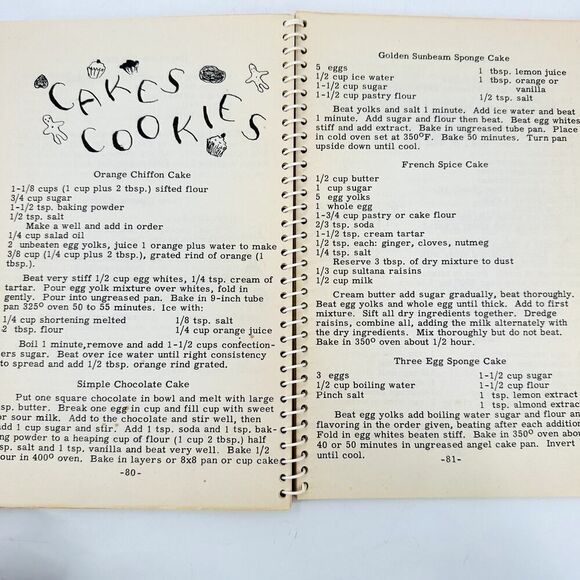 CAKES
COOKIES
Orange Chiffon Cake
1-1/8 cups (1 cup plus 2 tbsp.) sifted flour
3/4 cup sugar
1-1/2 tsp. baking powder
1/2 tsp. salt
Make a well and add in order
1/4 cup salad oil
2 unbeaten egg yolks, juice 1 orange plus water to make
3/8 cup (1/4 cup plus 2 tbsp.), grated rind of orange (1
tbsp.).
Beat very stiff 1/2 cup egg whites, 1/4 tsp. cream of
tartar. Pour egg yolk mixture over whites, fold in
gently. Pour into ungreased pan. Bake in 9-inch tube
pan 325° oven 50 to 55 minutes. Ice with:
1/4 cup shortening melted 1/8 tsp. salt
2 tbsp. flour 1/4 cup orange juice
Boil 1 minute, remove and add 1-1/2 cups confection-
ers sugar. Beat over ice water until right consistency
to spread and add 1/2 tbsp. orange rind grated.
Simple Chocolate Cake
Put one square chocolate in bowl and melt with large
sp. butter. Break one egg in cup and fill cup with sweet
or sour milk. Add to the chocolate and stir well, then
add 1 cup sugar and stir. Add 1 tsp. soda and 1 tsp. bak-
ing powder to a heaping cup of flour (1 cup 2 tbsp.) half
sp. salt and 1 tsp. vanilla and beat very well. Bake 1/2
our in 400° oven. Bake in layers or 8x8 pan or cup cake
-80-
Golden Sunbeam Sponge Cake
5 eggs 1 tbsp. lemon juice
1/2 cup ice water 1 tbsp. orange or
1-1/2 cup sugar vanilla
1-1/2 cup pastry flour 1/2 tsp. salt
Beat yolks and salt 1 minute. Add ice water and beat
1 minute. Add sugar and flour then beat. Beat egg whites
stiff and add extract. Bake in ungreased tube pan. Place
in cold oven set at 350°F. Bake 50 minutes. Turn pan
upside down until cool.
French Spice Cake
1/2 cup butter
1 cup sugar
5 egg yolks
1 whole egg
1-3/4 cup pastry or cake flour
2/3 tsp. soda
1-1/2 tsp. cream tartar
1/2 tsp. each: ginger, cloves, nutmeg
1/4 tsp. salt
Reserve 3 tbsp. of dry mixture to dust
1/3 cup sultana raisins
1/2 cup milk
Cream butter add sugar gradually, beat thoroughly.
Beat egg yolks and whole egg until thick. Add to first
mixture. Sift all dry ingredients together. Dredge
raisins, combine all, adding the milk alternately with
the dry ingredients. Mix thoroughly but do not beat.
Bake in 350° oven about 1/2 hour.
Three Egg Sponge Cake
3 eggs 1-1/2 cup sugar
1/2 cup boiling water 1-1/2 cup flour
Pinch salt 1 tsp. lemon extract
1 tsp. almond extract
Beat egg yolks add boiling water sugar and flour an
flavoring in the order given, beating after each addition
Fold in egg whites beaten stiff. Bake in 350° oven abou
40 or 50 minutes in ungreased angel cake pan. Invert
until cool.
-81-